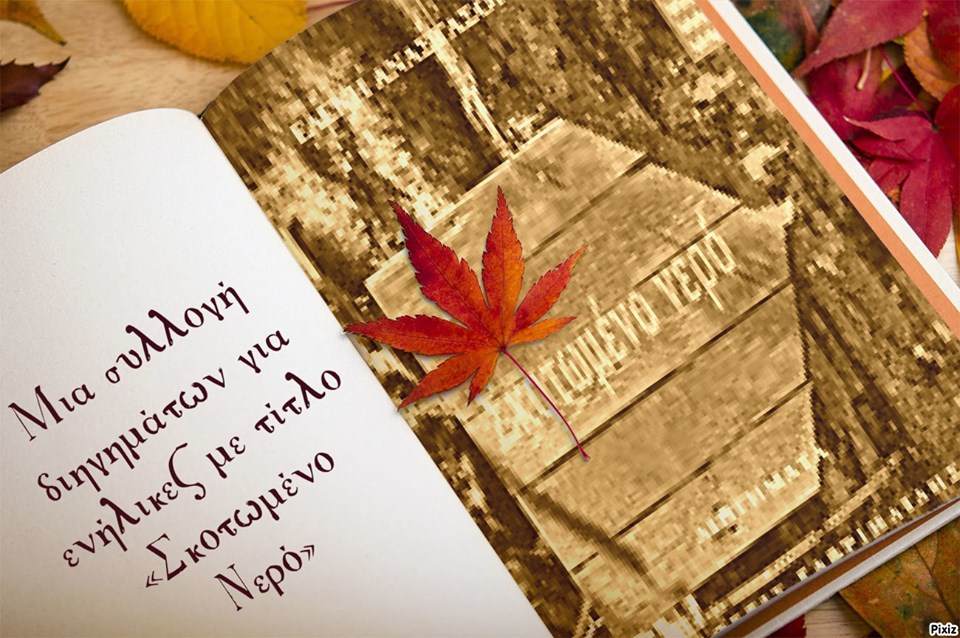 Μια συλλογή
διηγημάτων για
ενήλικες με τίτλο
«Σκοτωμένο
Νερό»
Σκοτωμένο νερό
ΔΙΗΓΗΜΑΤΑ
Pixiz